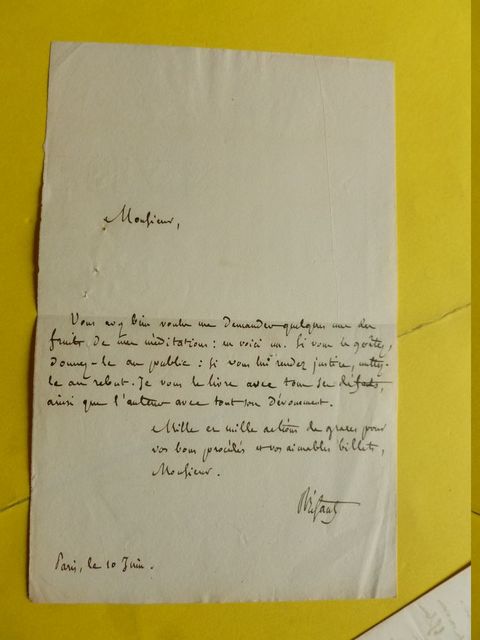 Monsieur,
Vous avez bien voulu me demander quelques uns des
fruits de mes méditations : en voici un. Si vous le goûtez,
donnez-le au public : si vous lui rendez justice, mettez-
le au rebut. Je vous le livre avec tous ses défauts,
ainsi que l'auteur avec tout son dévouement.
Mille et mille actions de graces pour
vos bons procédés et vos aimables billets,
Monsieur.
Bréfaut
Paris, le 10 Juin.